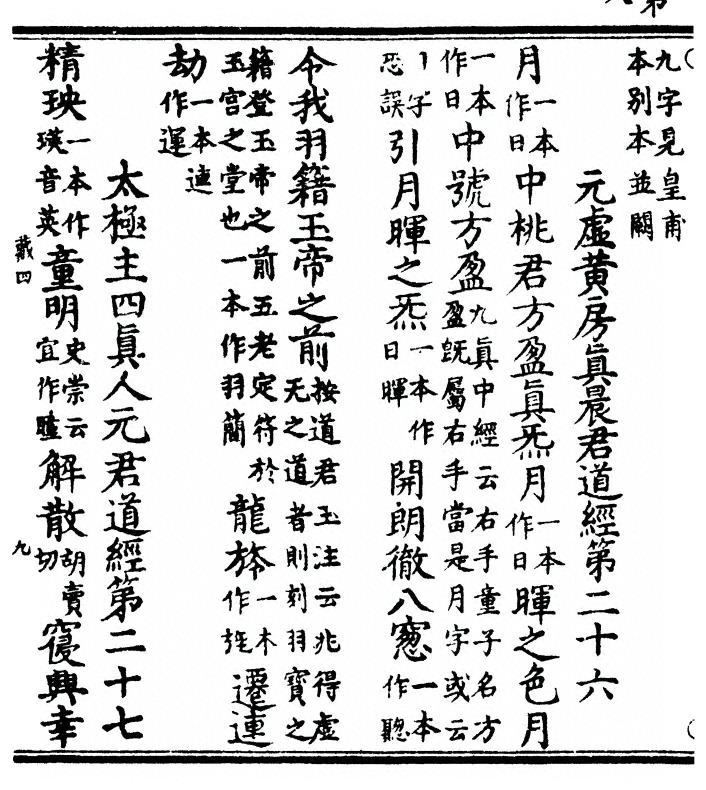 九字見皇甫
本別本並闕
元虛黃房眞晨君道經第二十六
月一本作日中桃君方盈眞炁月一本作日暉之色月
一本作日中號方盈九眞中經云右手童子名方盈旣屬右手當是月字或云
丨字恐誤引月暉之炁一本作日暉開朗徹八窓一本作聰
今我羽籍玉帝之前按道君玉注云兆得虛无之道者則刻羽寶之
籍登玉帝之前五老定符於玉宮之堂也一本作羽簡龍旂一本作旌遷連
一本連作運劫
太極主四眞人元君道經第二十七
精玦一本作瑛音英童明史崇云宜作瞳解散胡賣切𥨊興幸
戴四
九